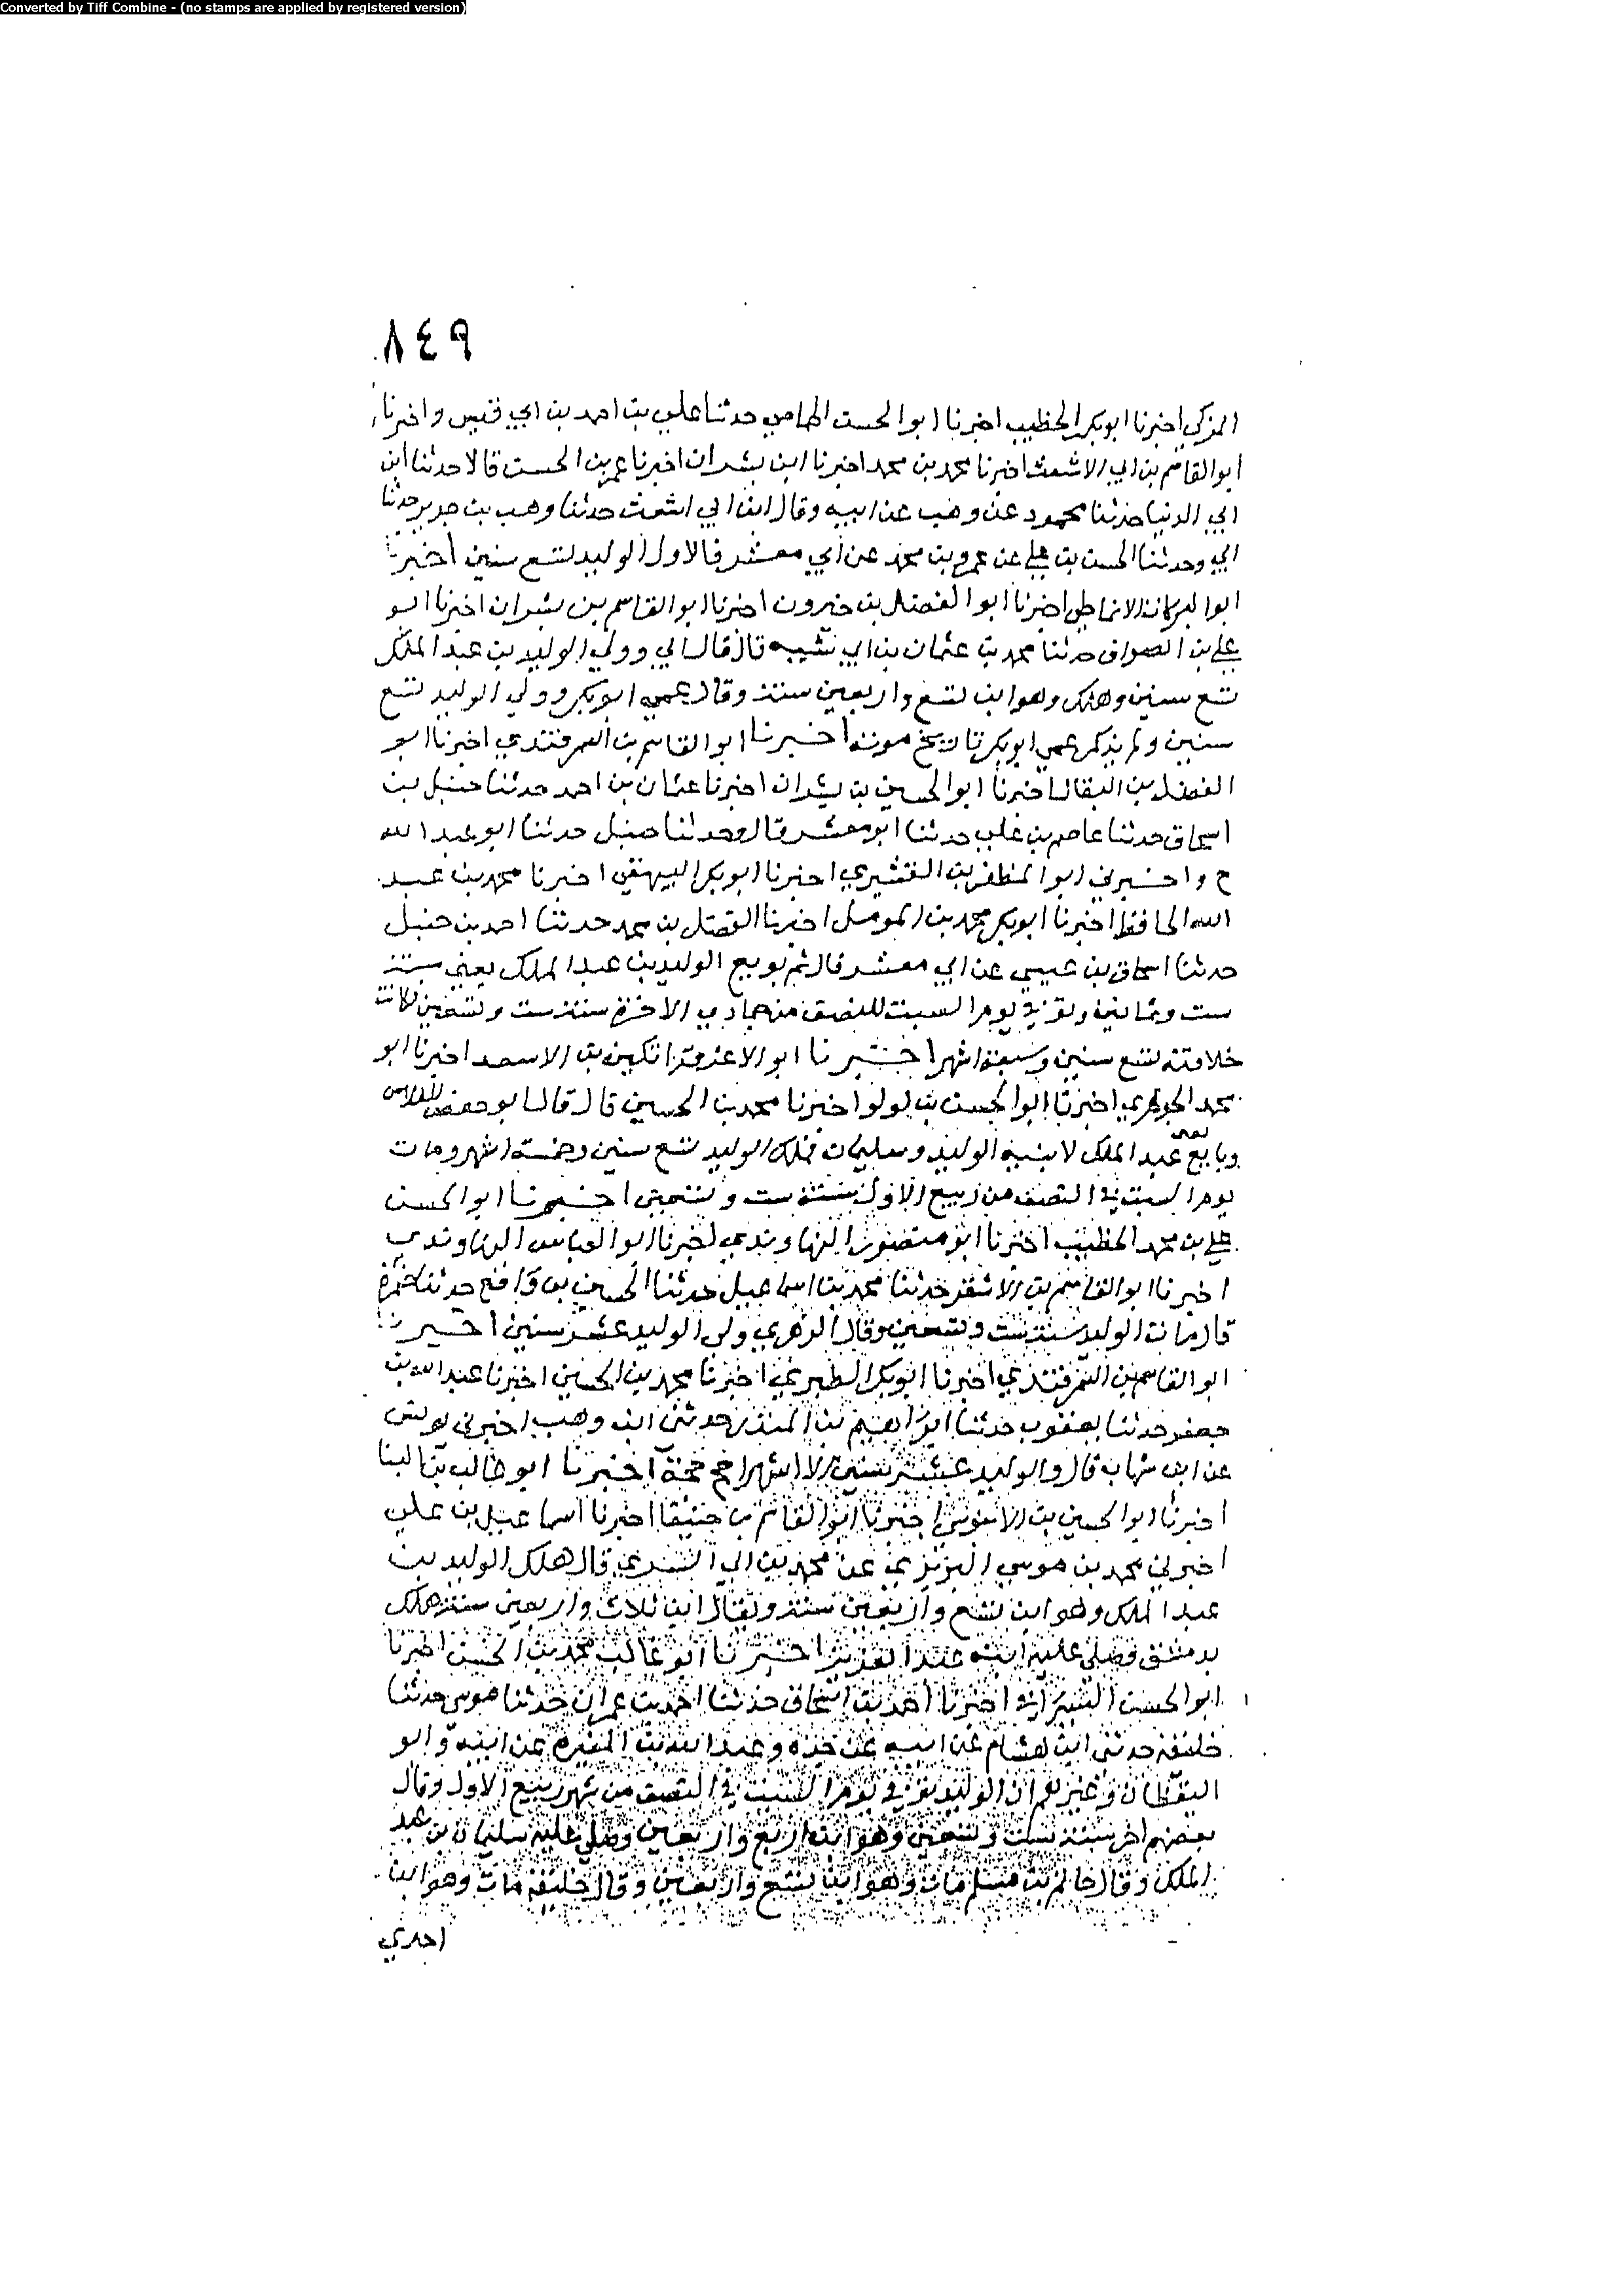 Converted by Tiff Combine - (no stamps are applied by registered version)
٨٤٩
المزكي اخبرنا ابو بكر الخطيب اخبرنا ابو الحسن الحمامي حدثنا علي بن احمد بن ابي قيس واخبرنا
ابو القاسم بن ابي الاشعث اخبرنا محمد بن محمد اخبرنا ابن بشران اخبرنا عمر بن الحسن قالا حدثنا ابن
ابي الدنيا حدثنا محمود عن وهب عن ابيه وقال ابن ابي اشعث حدثنا وهب بن جرير حدثنا
ابي وحدثنا الحسن بن علي عن عمرو بن محمد عن ابي معشر قالا ول الوليد تسع سنين اخبرنا
ابوا البركات الانماطي اخبرنا ابوا الفضل بن خيرون اخبرنا ابو القاسم بن بشران اخبرنا ابو
علي بن الصواف حدثنا محمد بن عثمان بن ابي شيبه قال قال ابي وولي الوليد بن عبد الملك
تسع سنين وهلك وهو ابن تسع واربعين سنة وقال عمي ابو بكر وولي الوليد تسع
سنين ولم يذكر عمي ابو بكر تاريخ موته اخبرنا ابو القاسم بن السمرقندي اخبرنا ابو
الفضل بن البقال اخبرنا ابوا الحسين بن بشران اخبرنا عثمان بن احمد حدثنا حنبل بن
اسحاق حدثنا عاصم بن علي حدثنا ابو معشر قال وحدثنا حنبل حدثنا ابو عبد الله
ح واخبرني ابوا المظفر بن القشيري اخبرنا ابو بكر البيهقي اخبرنا محمد بن عبد
الله الحافظ اخبرنا ابو بكر محمد بن المومل اخبرنا الفضل بن محمد حدثنا احمد بن حنبل
حدثنا اسحاق بن عيسي عن ابي معشر قال ثم بويع الوليد بن عبد الملك يعني سنة
ست وثمانين وتوفي يوم السبت للنصف من جمادي الاخرة سنة ست وتسعين فكانت
خلافته تسع سنين وسبعة اشهر اخبرنا ابو الاعز قراتكين بن الاسعد اخبرنا ابو
محمد الجوهري اخبرنا ابوا الحسن بن لولو اخبرنا محمد بن الحسين قال قال ابو حفص الفلاس
وبايع عبد الملك لابنيه الوليد وسليمان فملك الوليد تسع سنين وخمسة اشهر ومات
يوم السبت في النصف من ربيع الاول سنة ست وتسعين اخبرنا ابوا الحسن
علي بن محمد الخطيب اخبرنا ابو منصور النهاوندي اخبرنا ابو العباس النهاوندي
اخبرنا ابو القاسم بن الاشقر حدثنا محمد بن اسماعيل حدثنا الحسين بن واقع حدثنا ضمرة
قال مات الوليد سنة ست وتسعين وقال الزهري ولي الوليد عشر سنين اخبرنا
ابو القاسم بن السمرقندي اخبرنا ابو بكر الطبري اخبرنا محمد بن الحسين اخبرنا عبد الله بن
جعفر حدثنا يعقوب حدثنا ابراهيم بن المنذر حدثني ابن وهب اخبرني يونس
عن ابن شهاب قال والوليد عشر سنين الا اشهرا حج حجة اخبرنا ابو غالب بن البنا
اخبرنا ابو الحسين بن الابنوسي اخبرنا ابوا القاسم بن جنيقا اخبرنا اسماعيل بن علي
اخبرني محمد بن موسي البربري عن محمد بن ابي السري قال هلك الوليد بن
عبد الملك وهو ابن تسع واربعين سنة ويقال ابن ثلاث واربعين سنة هلك
بدمشق فصلى عليه ابنه عبد العزيز اخبرنا ابو غالب محمد بن الحسن اخبرنا
ابو الحسن السيرافي اخبرنا احمد بن اسحاق حدثنا احمد بن عمران حدثنا موسى حدثنا
خليفة حدثني ابن هشام عن ابيه عن جده وعبد الله بن المغيرة عن ابيه وابو
اليقظان وغيرهم ان الوليد توفي يوم السبت في النصف من شهر ربيع الاول وقال
بعضهم اخر سنة ست وتسعين وهو ابن اربع واربعين وصلي عليه سليمان بن عبد
الملك وقال حاتم بن مسلم مات وهو ابن تسع واربعين وقال خليفة مات وهو ابن
احدي